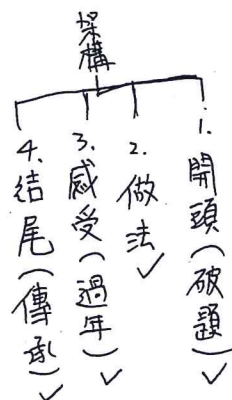 架構
1.開頭(破題)✓
2.做法✓
3.感受(過年)✓
4.結尾(傳承)✓